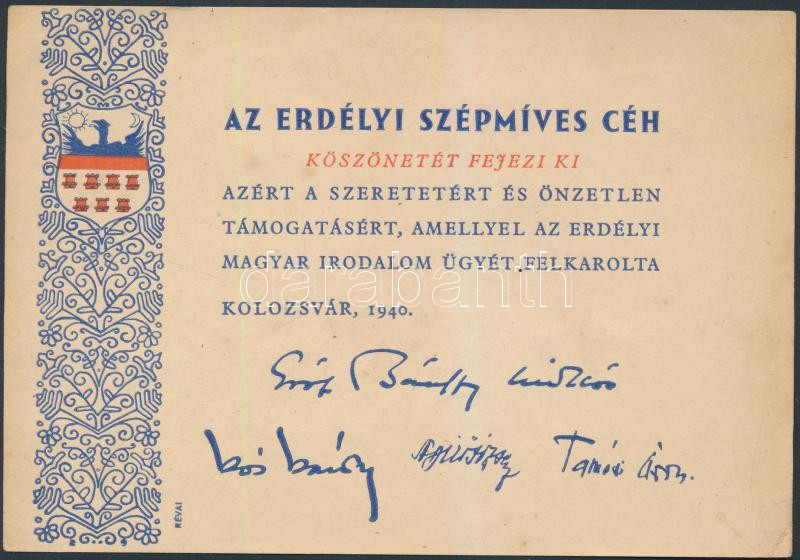 AZ ERDÉLYI SZÉPMÍVES CÉH
KÖSZÖNETÉT FEJEZI KI
AZÉRT A SZERETETÉRT ÉS ÖNZETLEN
TÁMOGATÁSÉRT, AMELLYEL AZ ERDÉLYI
MAGYAR IRODALOM ÜGYÉT FELKAROLTA
KOLOZSVÁR, 1940.
Gróf Bánffy Miklós
Kós Károly
Tamási Áron.
RÉVAI
darabanth